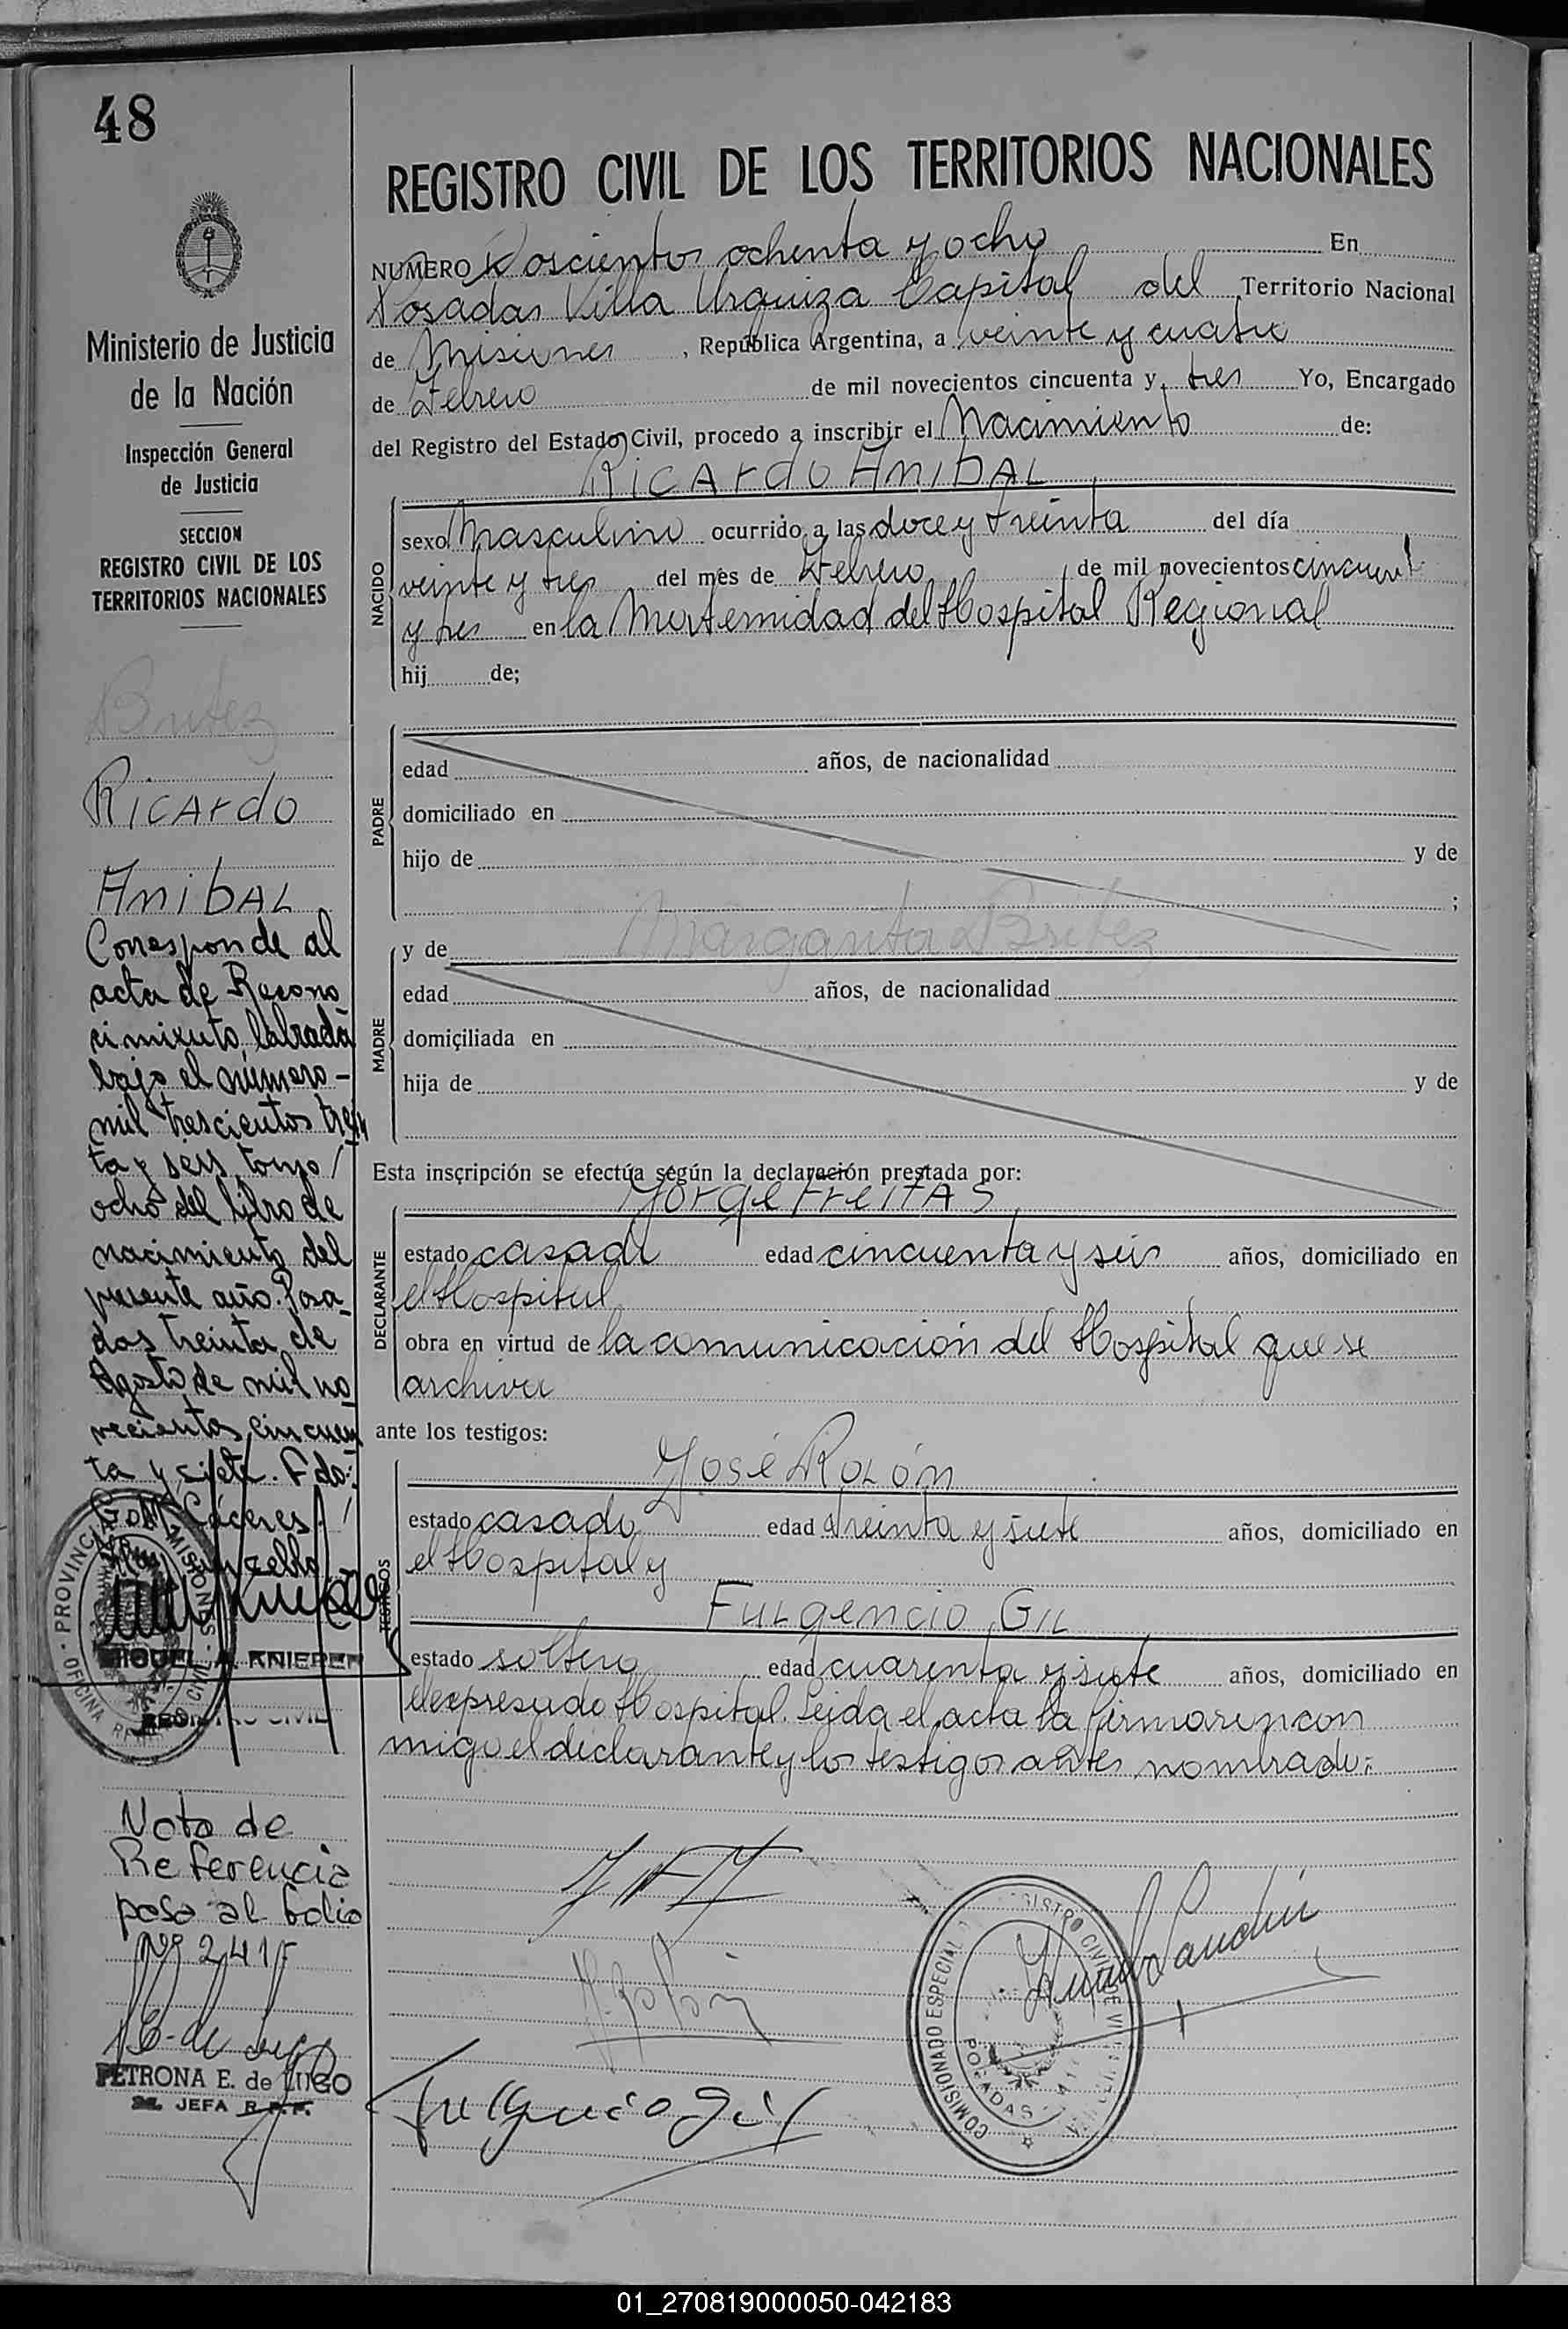 48
Ministerio de Justicia
de la Nación
Inspección General
de Justicia
SECCION
REGISTRO CIVIL DE LOS
TERRITORIOS NACIONALES
Britez
Ricardo
Anibal
Corresponde al
acta de Recono
cimiento, labrada
bajo el número -
mil trescientos trein
ta y seis, tomo
ocho del libro de
nacimiento del
presente año. Posa
das treinta de
Agosto de mil no
vecientos cincuen
ta y siete. Fdo:
Cáceres
PROVINCIA MISIONES
OFICINA CIVIL
MIGUEL A. KNIEPER
REGISTRO CIVIL
Nota de
Referencia
pasa al folio
Nº 241
PETRONA E. de LUGO
JEFA R.P.P.
REGISTRO CIVIL DE LOS TERRITORIOS NACIONALES
NUMERO Doscientos ochenta y ocho En
Posadas Villa Urquiza Capital del Territorio Nacional
de Misiones, República Argentina, a veinte y cuatro
de Febrero de mil novecientos cincuenta y tres Yo, Encargado
del Registro del Estado Civil, procedo a inscribir el Nacimiento de:
RicArdo AnibAL
NACIDO
sexo Masculino ocurrido a las doce y treinta del día
veinte y tres del mes de Febrero de mil novecientos cincuent
y tres en la Maternidad del Hospital Regional
hij de;
PADRE
edad años, de nacionalidad
domiciliado en
hijo de y de
;
MADRE
y de Margarita Britez
edad años, de nacionalidad
domiciliada en
hija de y de
Esta inscripción se efectúa según la declaración prestada por:
Jorge FreitAS
DECLARANTE
estado casado edad cincuenta y seis años, domiciliado en
el Hospital
obra en virtud de la comunicación del Hospital que se
archiva
ante los testigos:
José Rolón
TESTIGOS
estado casado edad treinta y siete años, domiciliado en
el Hospital y
Fulgencio Gil
estado soltero edad cuarenta y siete años, domiciliado en
el expresado Hospital. Leida el acta la firmaron con
migo el declarante y los testigos antes nombrados
Fulgencio Gil
COMISIONADO ESPECIAL REGISTRO CIVIL DE
POSADAS
01_270819000050-042183